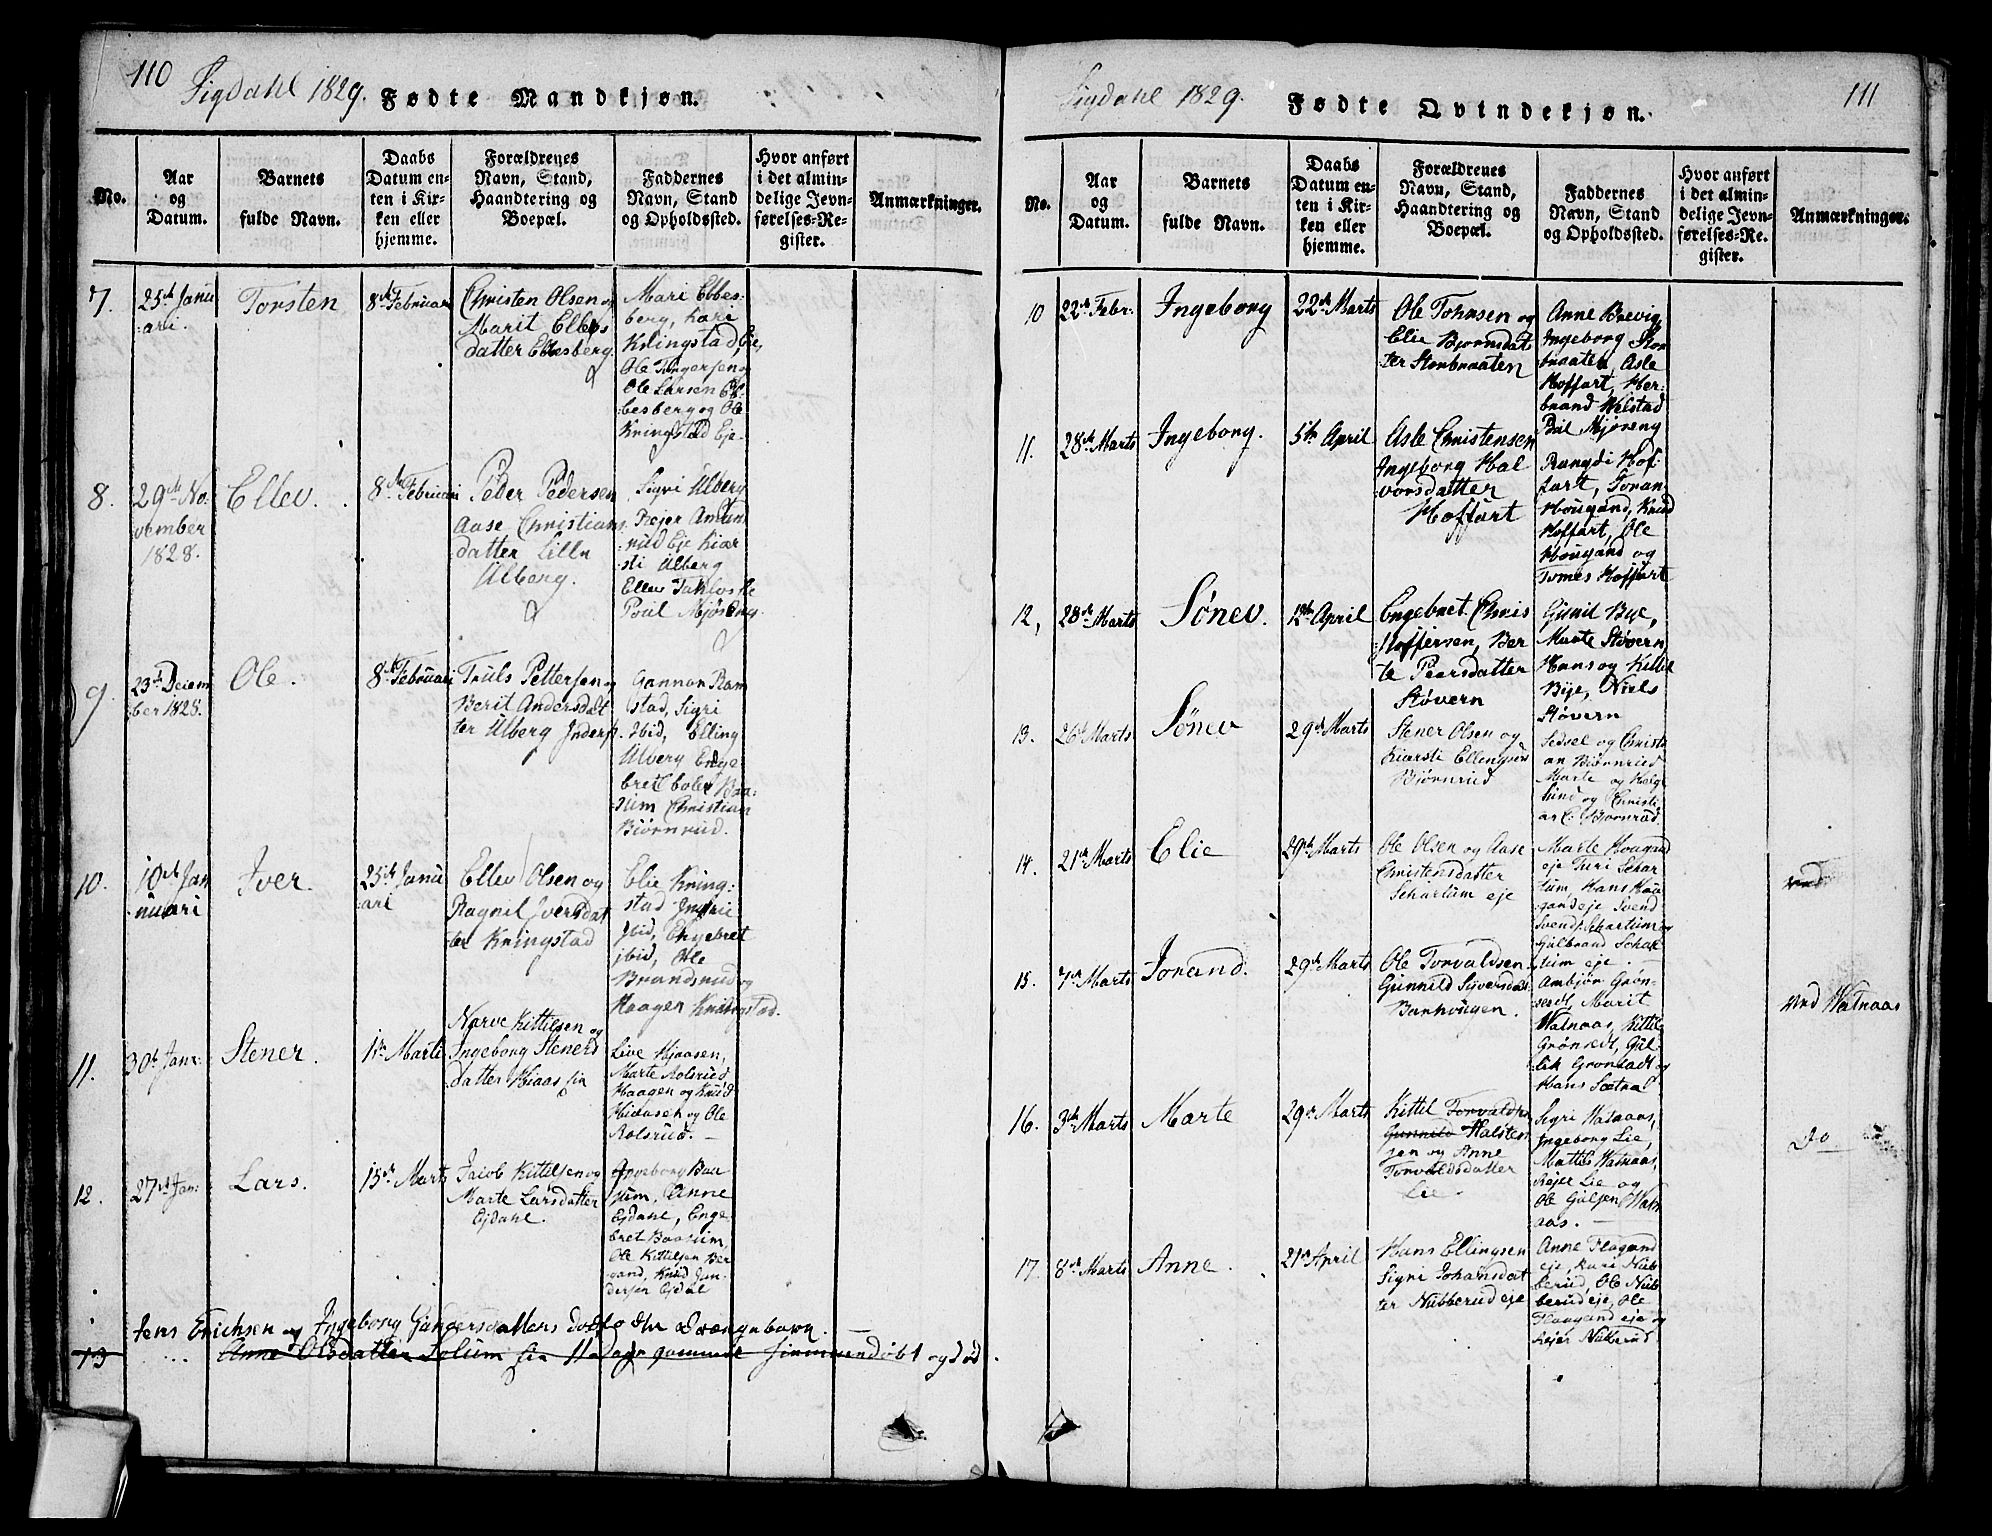 110 Sigdahl 1829. Fødte Mandkjøn.
No.
Aar
og
Datum.
Barnets
fulde Navn.
Daabs
Datum en-
ten i Kir-
ken eller
hjemme.
Forældrenes
Navn, Stand,
Haandtering og
Boepæl.
Faddernes
Navn, Stand
og Opholdssted.
Hvor anført
i det almin-
delige Jevn-
førelses-Re-
gister.
Anmærkninger.
7.
25de Janu
ari.
Torsten
8de Februari
Christen Olsen og
Marit Ellefs
datter Ebbesberg
Mari Ebbes-
berg, Kari
Kringstad Eje,
Ole Torgersen
Ole Larsen Eb-
besberg og Ole
Kringstad Eje.
8.
29de No-
vember
1828.
Ellev.
8de Februari
Peder Pedersen
Aase Christians
datter Lille
Ulberg.
Sigri Ulberg
Rejer Amun
rud Eje Kiær
sti Ulberg
Ellev
Poul Mjøseng.
9.
23de Decem
ber 1828.
Ole.
8de Februari
Truls Pettersen og
Berit Andersdat
ter Ulberg Inders.
Gunnor Ram
stad, Sigri
Ibid, Elling
Ulberg Enge
bret Baa-
sum Christian
Biørnrud.
10.
10de Jan
nuari
Iver.
25de Janu
ari
Ellev Olsen og
Ragnil Iversdat
ter Kringstad
Elie Kring-
stad Ingri
Ibid, Engebret
ibid, Ole
Brandsrud og
Haagen Kringstad.
11.
30te Janr:
Stener.
1ste Marti
Narve Kittilsen og
Ingeborg Steners
datter Kiaas
Live Kjaasen,
Marte Rolsrud
Haagen og Knud
Kidasen og Ole
Rolsrud.
12.
27de Jan:
Lars.
15de Marts
Jacob Kittilsen og
Marte Larsdatter
Ejdahl.
Ingeborg Baa
sum, Anne
Ejdahl, Enge
bret Baasum,
Ole Kittilsen Ber
gand, Knud Jan-
dersen Ejdal
Jens Erichsen og Ingeborg Gundersdatters dødfødte Drængebarn
13
Anne Olsdatter Solum
Sigdahl 1829. Fødte Qvindekjøn. 111
No.
Aar
og
Datum.
Barnets
fulde Navn.
Daabs
Datum en-
ten i Kir-
ken eller
hjemme.
Forældrenes
Navn, Stand,
Haandtering og
Boepæl.
Faddernes
Navn, Stand
og Opholdssted.
Hvor anført
i det almin-
delige Jevn-
førelses-Re-
gister.
Anmærkninger.
10
22de Febr:
Ingeborg
22de Marts
Ole Johnsen og
Elie Bjornsdat
ter Storbraaten
Anne Brevig,
Ingeborg Stor
braaten, Asle
Hoffart, Her-
brand Welstad
Poul Mjøseng
11.
28de Marts
Ingeborg.
5te April
Asle Christensen
Ingeborg Hal
vorsdatter
Hoffart
Rangdi Hof-
fart, Joran
Hougand, Knud
Hoffart, Ole
Hougand og
Tomes Hoffart
12,
28de Marts
Sønev.
12te April
Engebret Chris
stoffersen, Ber
te Pearsdatter
Støvern
Gunil Bye,
Marte Støvern
Hans og Kittel
Bye, Niels
Støvern
13.
26de Marts
Sønev
29de Marts
Stener Olsen og
Kiersti Ellingsdr
Bjørnrud
Sedsel og Christi
an Biørnrud
Marte og Helge
Lund og Christi-
an C. Bjornrud.
14.
21de Marts
Elie
29de Marts
Ole Olsen og Aase
Christensdatter
Schartum eje
Marte Hougand
eje Turi Schar
tum, Hans Hou
gandeje Svend
Svends: Schartum og
Gulbrand Schar
tum eje.
15.
7de Marts
Jorand.
29de Marts
Ole Torvaldsen
Gunnild Siversdat
Bankhougen.
Ambjør Grøn-
sedt, Marit
Watnaas, Kittil
Grønsedt, Gul-
lik Gronsedt og
Hans Sætra
ved Watnaas
16.
3de Marts
Marte
29de Marts
Kittil Torvalds
Gunnild Halsten
sen og Anne
Torvaldsdatter
Lie.
Sigri Watnaas,
Ingeborg Lie,
Mattis Watnaas,
Rejer Lie og
Ole Gulsen Wat
aas.
Do
17.
8de Marts
Anne.
21de April
Hans Ellingsen
Sigri Johansdat
ter Nubberud eje
Anne Flagand
eje, Kari Nub
berud, Ole Nub
berud eje, Ole
Flaagand eje og
Rejer Nubrud